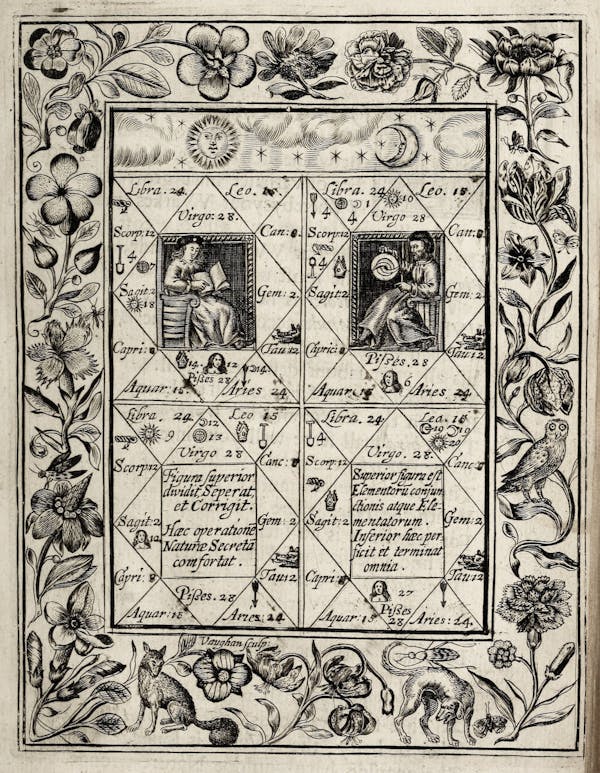 Libra. 24. Leo. 15.
Virgo: 28.
Scorp: 12 Can: 8
4
Sagit: 2 Gem: 2.
18
Capri: 8 Tau: 12
14. 12 14.
Pisses 28
Aquar: 15. Aries 24.
Libra. 24 Leo. 15.
1 10
4 Virgo 28
Scorp: 12 Can: 8
4
Sagit: 2 Gem: 2.
Capric: 8 Tau: 12
Pisses. 28
6
Aquar: 15. Aries. 24
Libra. 24. Leo 15
9 12
13
Virgo 28
Scorp: 12 Canc: 8
Figura superior
dividit, Seperat,
et Corrigit.
Hæc operatione
Naturæ Secreta
comfortat.
Sagit: 2 Gem: 2.
12
Capri: 8 Tau: 12
Pisses. 28
Aquar: 15 Aries: 24
Libra. 24. Leo. 15
4 19 19
20
Virgo. 28
Scorp: 12 Canc: 8
Superior figura est
Elementorū conjun
ctionis atque Ele-
mentatorum.
Inferior hæc per
ficit et terminat
omnia.
Sagit: 2 Gem: 2.
Capri: 8 Tau: 12
27
Pisses
28
Aquar: 15 Aries: 24.
Vaughan sculp: